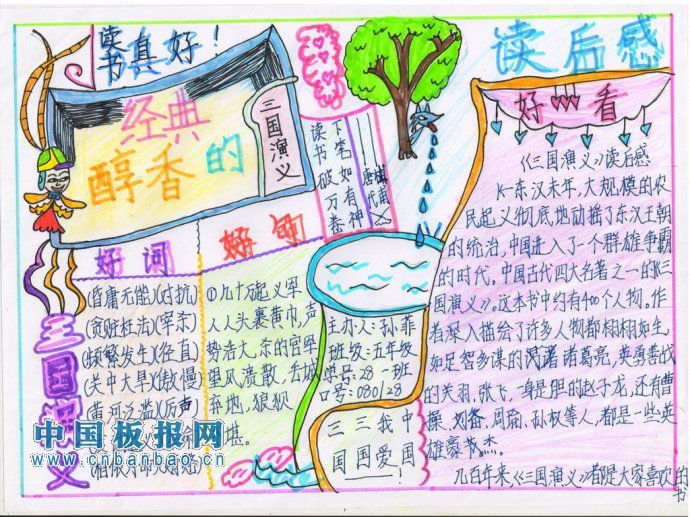 读书真好！
经典
醇香的
三国演义
读书破万卷
下笔如有神
唐代
好词
好句
(昏庸无能)(对抗)
(贪赃枉法)(宰杀)
(频繁发生)(径直)
(关中大旱)(傲慢)
(黄河泛滥)(厉声)
①几十万起义军
人人头裹黄巾,声
势浩大,东的官军
望风溃散,丢城
弃地,狼狈
堪。
三国演义
主办人:孙菲
班级:五年级
学号:28 一班
口号:080128
三三我中
国国爱国
读后感
好看
《三国演义》读后感
东汉末年,大规模的农
民起义彻底地动摇了东汉王朝
的统治,中国走入了一个群雄争霸
的时代。中国古代四大名著之一的《三
国演义》。这本书中约有400个人物。作
者深入描绘了许多人物都栩栩如生。
如足智多谋的诸葛亮,英勇善战
的关羽、张飞,一身是胆的赵子龙,还有曹
操、刘备、周瑜、孙权等人,都是一些英
雄豪杰。
几百年来《三国演义》都是大家喜欢的
书
中国板报网
www.cnbanbao.cn